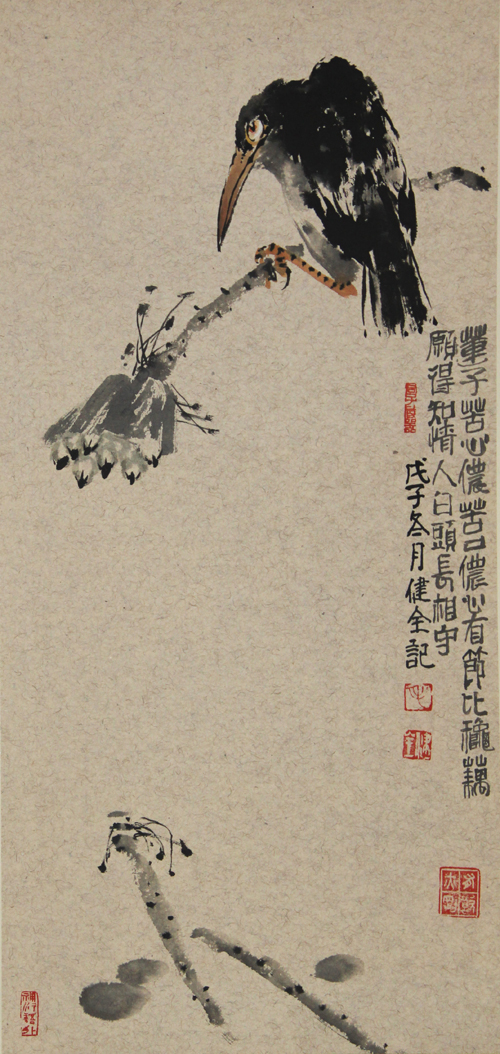 蓮子苦心儂苦口儂心有節比穐藕
願得知情人白頭長相守
戊子冬月健全記